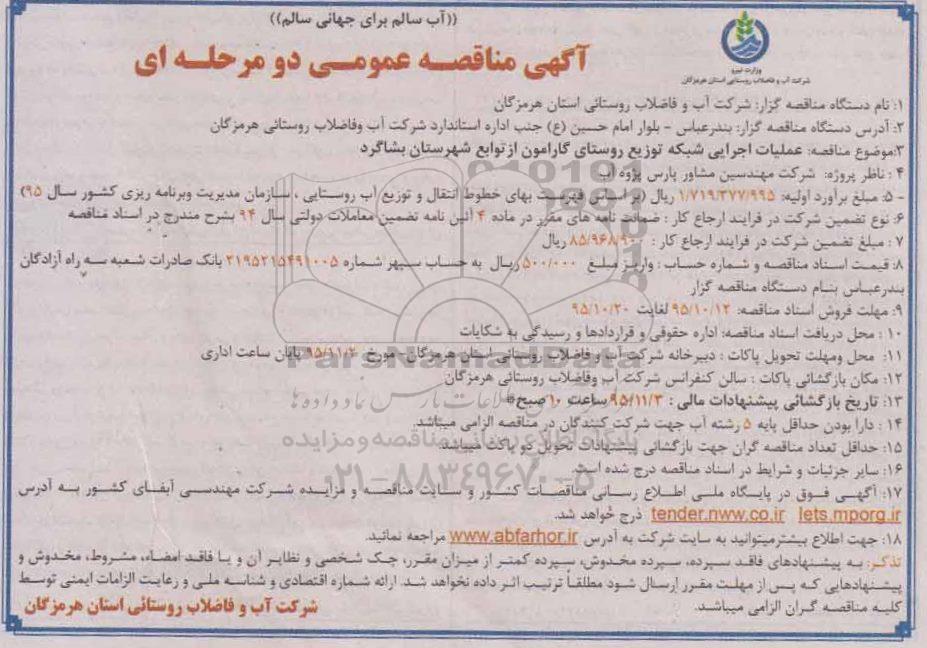 ((آب سالم برای جهانی سالم))
وزارت نیرو
شرکت آب و فاضلاب روستایی استان هرمزگان
آگهی مناقصه عمومی دو مرحله ای
۱: نام دستگاه مناقصه گزار: شرکت آب و فاضلاب روستائی استان هرمزگان
۲: آدرس دستگاه مناقصه گزار: بندرعباس - بلوار امام حسین (ع) جنب اداره استاندارد شرکت آب وفاضلاب روستائی هرمزگان
۳:موضوع مناقصه: عملیات اجرایی شبکه توزیع روستای گارامون ازتوابع شهرستان بشاگرد
۴ : ناظر پروژه: شرکت مهندسین مشاور پارس پژوه آب
۵- : مبلغ برآورد اولیه: ۱/۷۱۹/۳۷۷/۹۹۵ ریال (بر اساس فهرست بهای خطوط انتقال و توزیع آب روستایی ، سازمان مدیریت وبرنامه ریزی کشور سال ۹۵)
۶: نوع تضمین شرکت در فرایند ارجاع کار : ضمانت نامه های مقرر در ماده ۴ آئین نامه تضمین معاملات دولتی سال ۹۴ بشرح مندرج در اسناد مناقصه
۷ : مبلغ تضمین شرکت در فرایند ارجاع کار : ۸۵/۹۶۸/۹۰۰ ریال
۸: قیمت اسناد مناقصه و شماره حساب : واریز مبلغ ۵۰۰/۰۰۰ ریال به حساب سپهر شماره ۲۱۹۵۲۱۵۴۹۱۰۰۵ بانک صادرات شعبه سه راه آزادگان
بندرعباس بنام دستگاه مناقصه گزار
۹: مهلت فروش اسناد مناقصه: ۹۵/۱۰/۱۲ لغایت ۹۵/۱۰/۲۰
۱۰ : محل دریافت اسناد مناقصه: اداره حقوقی و قراردادها و رسیدگی به شکایات
۱۱: محل ومهلت تحویل پاکات : دبیرخانه شرکت آب و فاضلاب روستائی استان هرمزگان - مورخ ۹۵/۱۱/۲ پایان ساعت اداری
۱۲: مکان بازگشائی پاکات : سالن کنفرانس شرکت آب وفاضلاب روستائی هرمزگان
۱۳: تاریخ بازگشائی پیشنهادات مالی : ۹۵/۱۱/۳ ساعت ۱۰ صبح
۱۴ : دارا بودن حداقل پایه ۵ رشته آب جهت شرکت کنندگان در مناقصه الزامی میباشد.
۱۵: حداقل تعداد مناقصه گران جهت بازگشائی پیشنهادات تحویل دو پاکت میباشد.
۱۶: سایر جزئیات و شرایط در اسناد مناقصه درج شده است.
۱۷: آگهی فوق در پایگاه ملی اطلاع رسانی مناقصات کشور و سایت مناقصه و مزایده شرکت مهندسی آبفای کشور به آدرس
tender.nww.co.ir Iets.mporg.ir درج خواهد شد.
۱۸: جهت اطلاع بیشترمیتوانید به سایت شرکت به آدرس www.abfarhor.ir مراجعه نمائید.
تذکر: به پیشنهادهای فاقد سپرده، سپرده مخدوش، سپرده کمتر از میزان مقرر، چک شخصی و نظایر آن و یا فاقد امضاء، مشروط، مخدوش و
پیشنهادهایی که پس از مهلت مقرر ارسال شود مطلقاً ترتیب اثر داده نخواهد شد. ارائه شماره اقتصادی و شناسه ملی و رعایت الزامات ایمنی توسط
کلیه مناقصه گران الزامی میباشد.
شرکت آب و فاضلاب روستائی استان هرمزگان
ParsNamadData
پایگاه اطلاع رسانی مناقصه و مزایده
۰۲۱-۸۸۳۴۹۶۷۰-۵